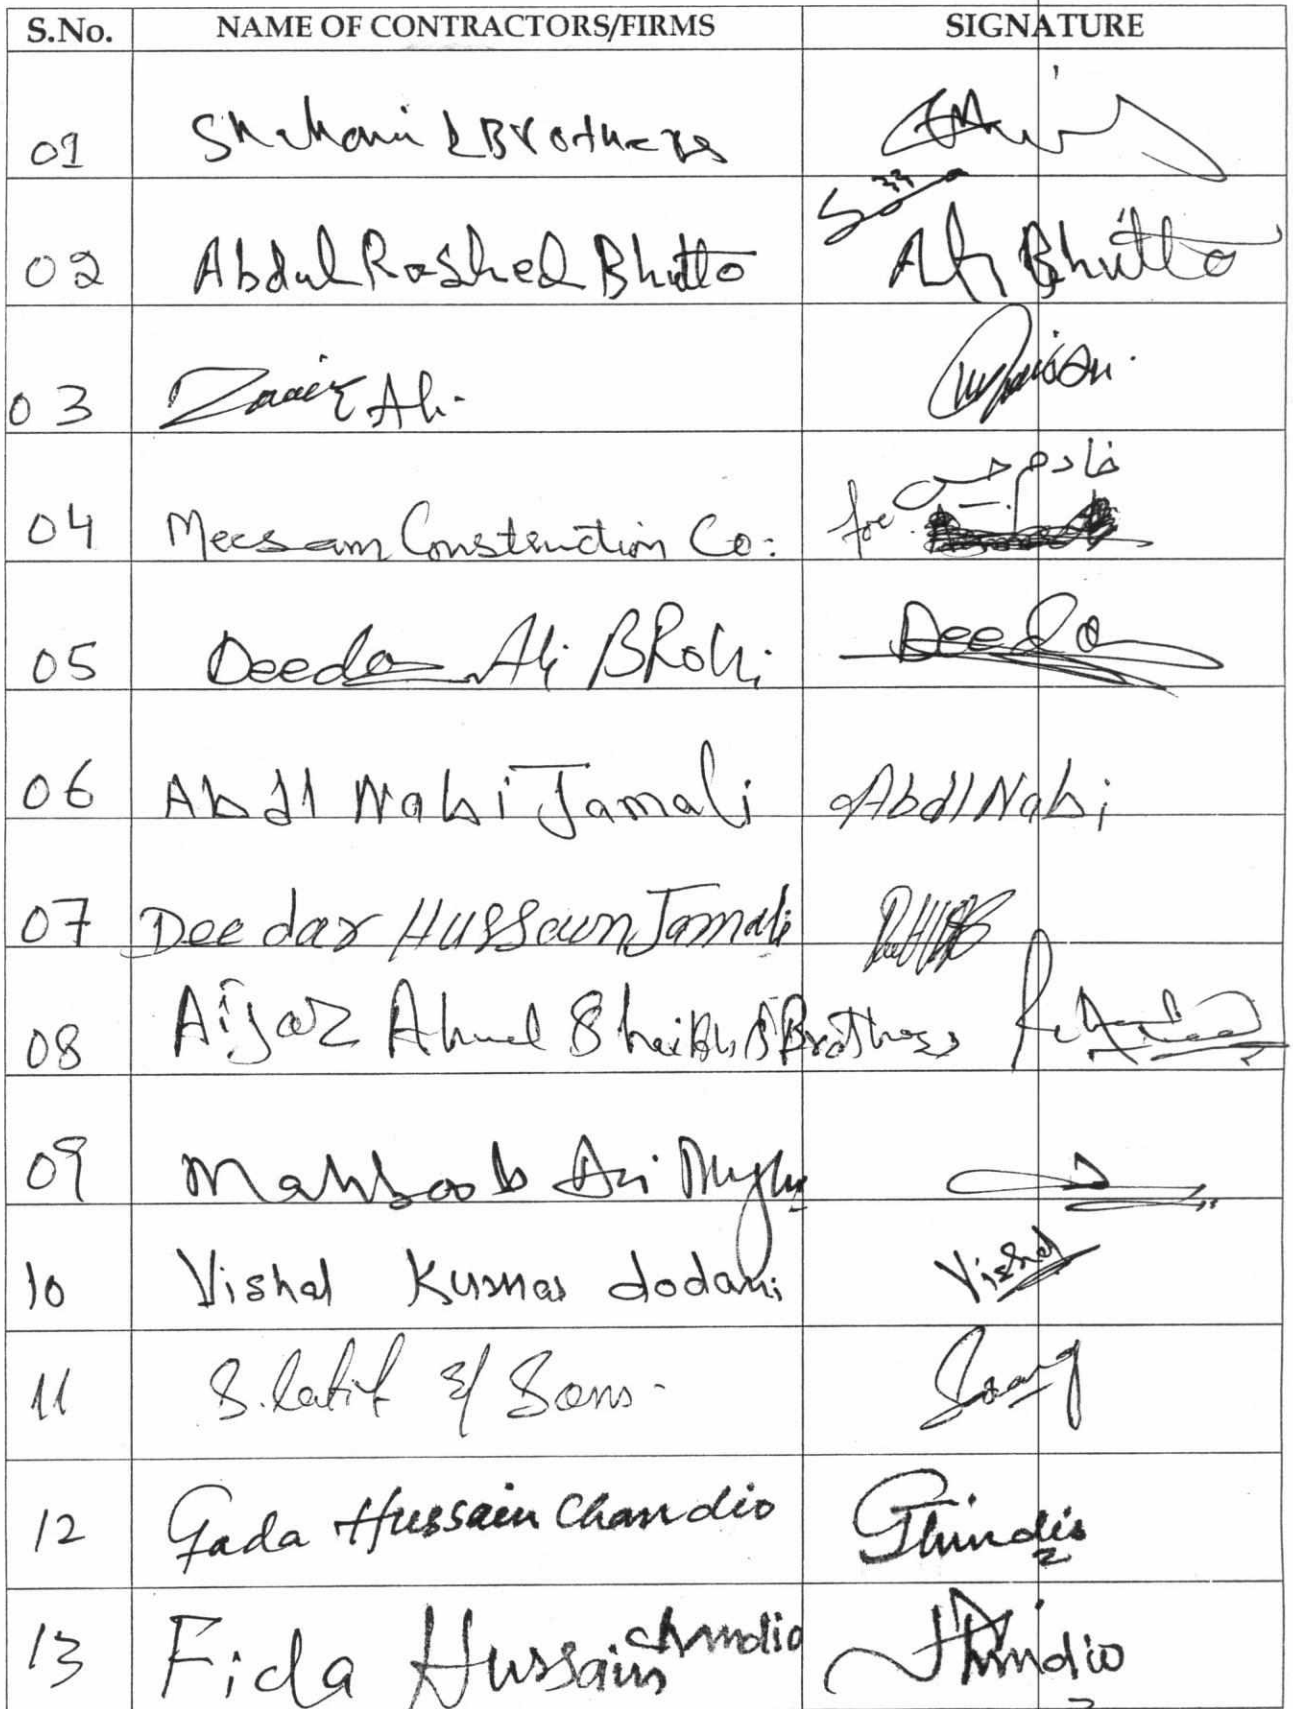 S.No. NAME OF CONTRACTORS/FIRMS SIGNATURE
01 Shahani & Brothers
02 Abdul Rashed Bhutto Bhutto
03 Zamir Ali.
04 Meesam Construction Co: for خادم حسين
05 Deedar Ali BRohi Deedar
06 Abdl Nabi Jamali Abdl Nabi
07 Deedar Hussain Jamali
08 Aijaz Ahmed Shaikh & Brothers
09 Mahboob Ali Mughri
10 Vishal Kumar dodani Vishal
11 S. Latif & Sons.
12 Gada Hussain Chandio
13 Fida Hussain chandio